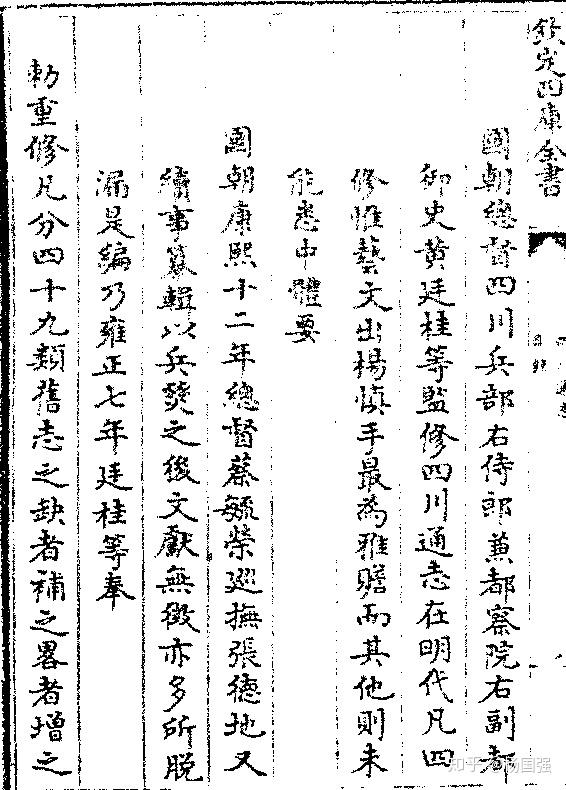 欽定四庫全書
國朝總督四川兵部右侍郎兼都察院右副都
御史黃廷桂等監修四川通志在明代凡四
修惟藝文出楊慎手最為雅贍而其他則未
能悉中體要
國朝康熙十二年總督蔡毓榮廵撫張德地又
續事纂輯以兵燹之後文獻無徴亦多所脱
漏是編乃雍正七年廷桂等奉
勅重修凡分四十九類舊志之缺者補之畧者增之
知乎 @杨国强